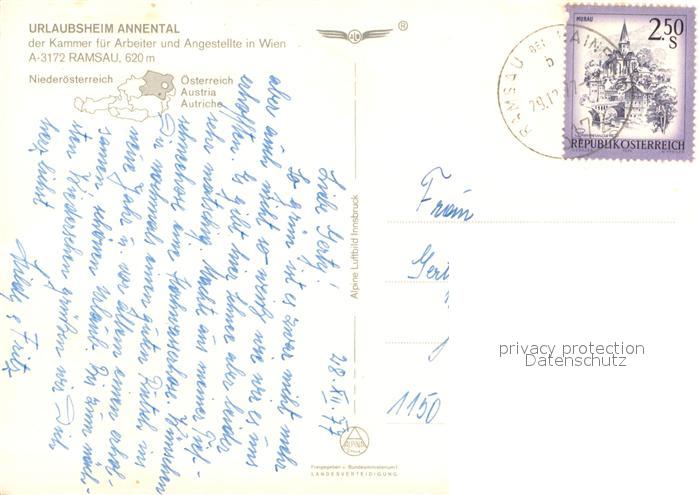 URLAUBSHEIM ANNENTAL
der Kammer für Arbeiter und Angestellte in Wien
A-3172 RAMSAU, 620 m
Niederösterreich
Österreich
Austria
Autriche
ALM
®
RAMSAU BEI HAINF
b
29.12.77
MURAU
2.50
S
REPUBLIK ÖSTERREICH
28. XII. 77
Liebe Gerti!
So grün ist es zwar nicht mehr
aber auch nicht so weiß wie wir es uns
erhofften. Es gibt hier Schnee aber leider
sehr matschig. Macht aus meiner Tief-
schneehose eine Hochwasserhose. Wünschen
Dir nochmals einen guten Rutsch ins
neue Jahr u. vor allem einen erhol-
samen schönen Urlaub. Bis zum näch-
sten Wiedersehen grüßen wir Dich
herzlichst
& Fritz
Alpine Luftbild Innsbruck
ALPINE
Freigegeben v. Bundesministerium f.
LANDESVERTEIDIGUNG
Frau
Geri
1150
privacy protection
Datenschutz